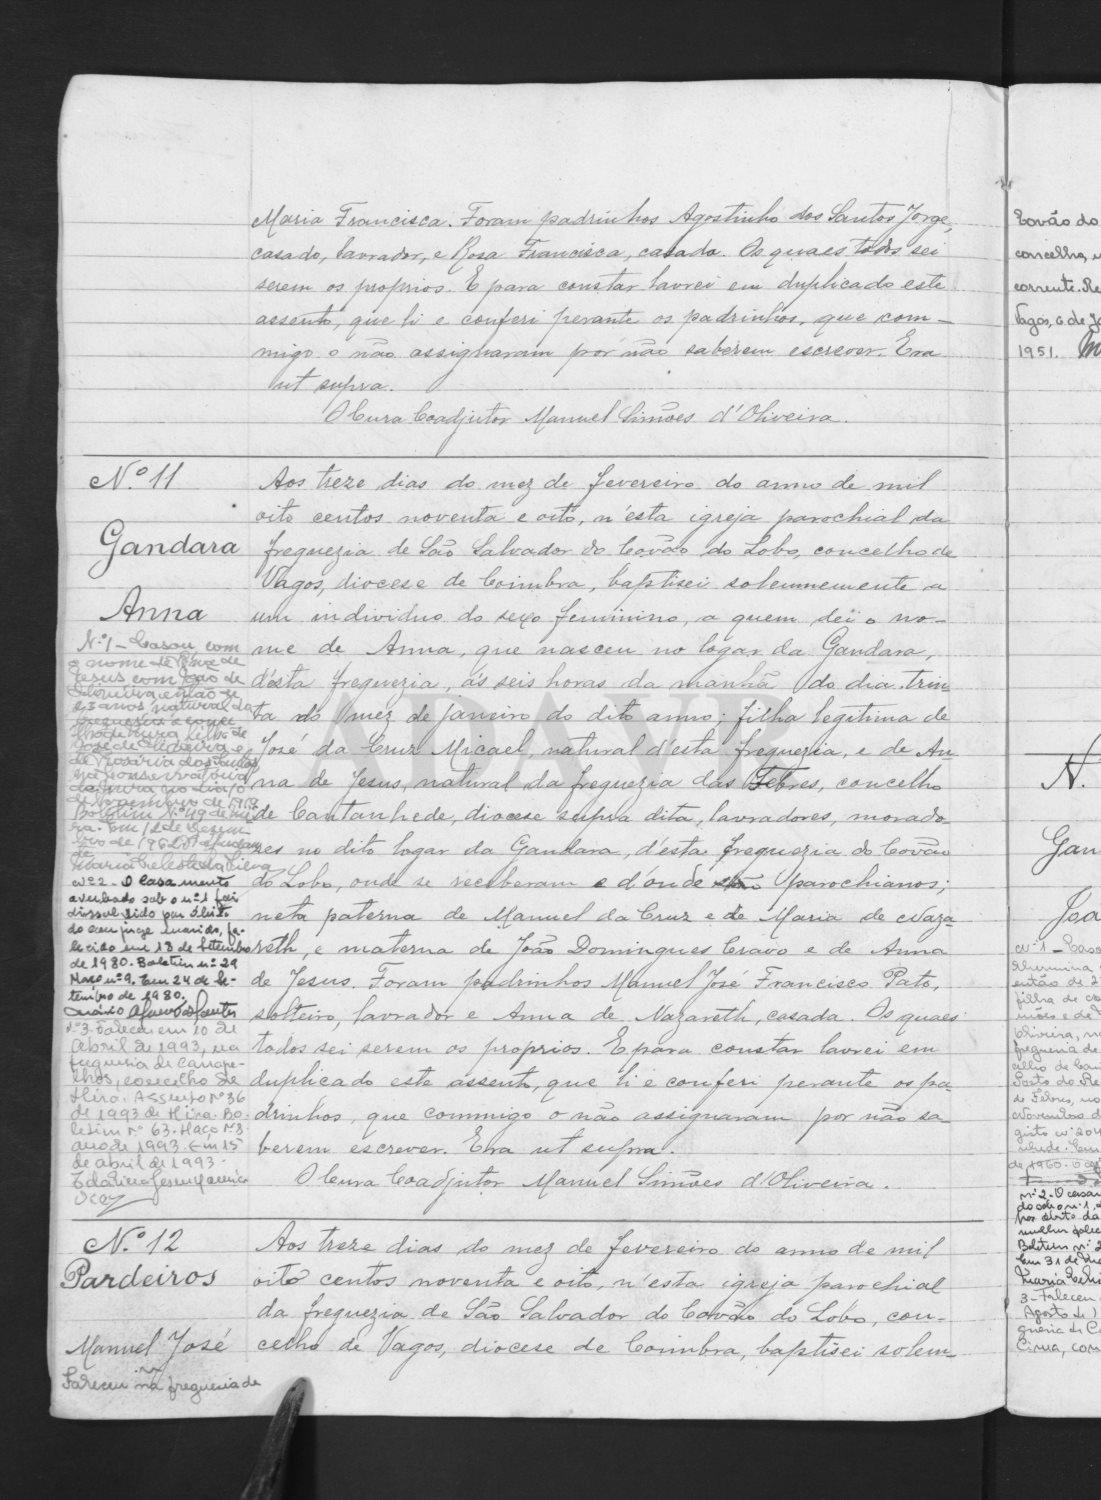 Maria Francisca. Foram padrinhos Agostinho dos Santos Jorge,
casado, lavrador, e Rosa Francisca, casada. Os quaes todos sei
serem os proprios. E para constar lavrei em duplicado este
assento, que li e conferi perante os padrinhos, que com-
migo o não assignaram por não saberem escrever. Era
ut supra.
O Cura Coadjutor Manuel Simões d'Oliveira.
N.º 11
Gandara
Anna
Aos treze dias do mez de fevereiro do anno de mil
oito centos noventa e oito, n'esta igreja parochial da
freguezia de São Salvador do Covão do Lobo, concelho de
Vagos, diocese de Coimbra, baptisei solemnemente a
um individuo do sexo feminino, a quem dei o no-
me de Anna, que nasceu no logar da Gandara,
d'esta freguezia, ás seis horas da manhã do dia trin
ta do mez de janeiro do dito anno; filha legitima de
José da Cruz Micael, natural d'esta freguezia, e de An-
na de Jesus, natural da freguezia das Febres, concelho
de Cantanhede, diocese supra dita, lavradores, morado-
res no dito logar da Gandara, d'esta freguezia do Covão
do Lobo, onde se receberam e d'onde são parochianos;
neta paterna de Manuel da Cruz e de Maria de Naza-
reth, e materna de João Domingues Cravo e de Anna
de Jesus. Foram padrinhos Manuel José Francisco Pato,
solteiro, lavrador e Anna de Nazareth, casada. Os quaes
todos sei serem os proprios. E para constar lavrei em
duplicado este assento, que li e conferi perante os pa-
drinhos, que commigo o não assignaram por não sa-
berem escrever. Era ut supra.
O Cura Coadjutor Manuel Simões d'Oliveira.
N.º 1 - Casou com
o nome de
Jesus com João de
Oliveira então de
anos natural da
freguesia e conce
lho de Mira filho de
José de Oliveira e
de Rosaria dos
na Conservatória
de Mira no dia 10
de Novembro de
Boletim N.º 49 de Mi
ra. Em 12 de Dezem
bro de 1962
Maria Celeste da Silva
Nº 2 - O casamento
averbado sob o nº 1 foi
dissolvido por óbito
do conjuge marido, fa-
lecido em 13 de Setembro
de 1980. Boletim nº 29
Maço nº 9. Em 24 de Se-
tembro de 1980.
Nº 3 - Faleceu em 10 de
Abril de 1993, na
freguesia de Carape-
lhos, concelho de
Mira. Assento Nº 36
de 1993 de Mira. Bo-
letim Nº 63. Maço Nº 3
ano de 1993. Em 15
de abril de 1993.
N.º 12
Pardeiros
Manuel José
Faleceu na freguesia de
Aos treze dias do mez de fevereiro do anno de mil
oito centos noventa e oito, n'esta igreja parochial
da freguezia de São Salvador do Covão do Lobo, con-
celho de Vagos, diocese de Coimbra, baptisei solem-
Covão do
concelho,
corrente. Re
Vagos, 6 de Ja
1951.
N.
Gan
Joa
Nº 1 - Casou
então de 2
filha de
Oliveira, na
freguesia de
de Febres, no
Novembro d
de 1960.
nº 2 - O casam
do sob o nº 1,
por óbito da
mulher falec
Boletim nº 2
Em 31 de
Maria Celes
3 - Faleceu
Agosto de 1
guesia de Co
Cima, con
ADAVR